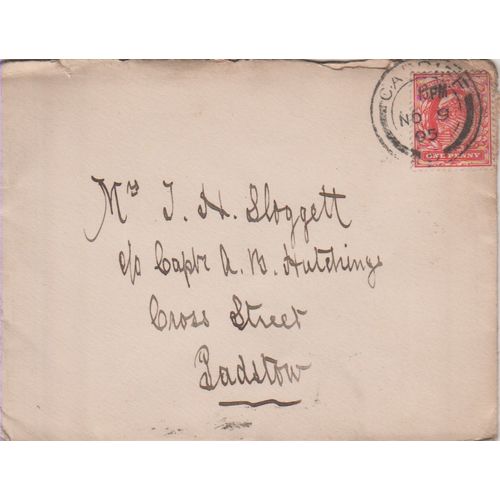 CARDIFF
PM
NO 9
05
ONE PENNY
Mrs J. H. Sloggett
c/o Captn A. B. Hutchings
Cross Street
Padstow